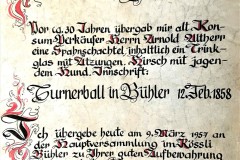 Vor ca. 30 Jahren übergab mir alt. Kon-
sum-Verkäufer Herrn Arnold Altherr
eine Spahnschachtel inhaltlich ein Trink-
glas mit Atzungen. Hirsch mit jagen-
dem Hund. Innschrift:
Turnerball in Bühler 12. Feb. 1858
Ich übergebe heute am 9. März 1957 an
der Hauptversammlung im Rössli
Bühler zu Ihrer guten Aufbewahrung